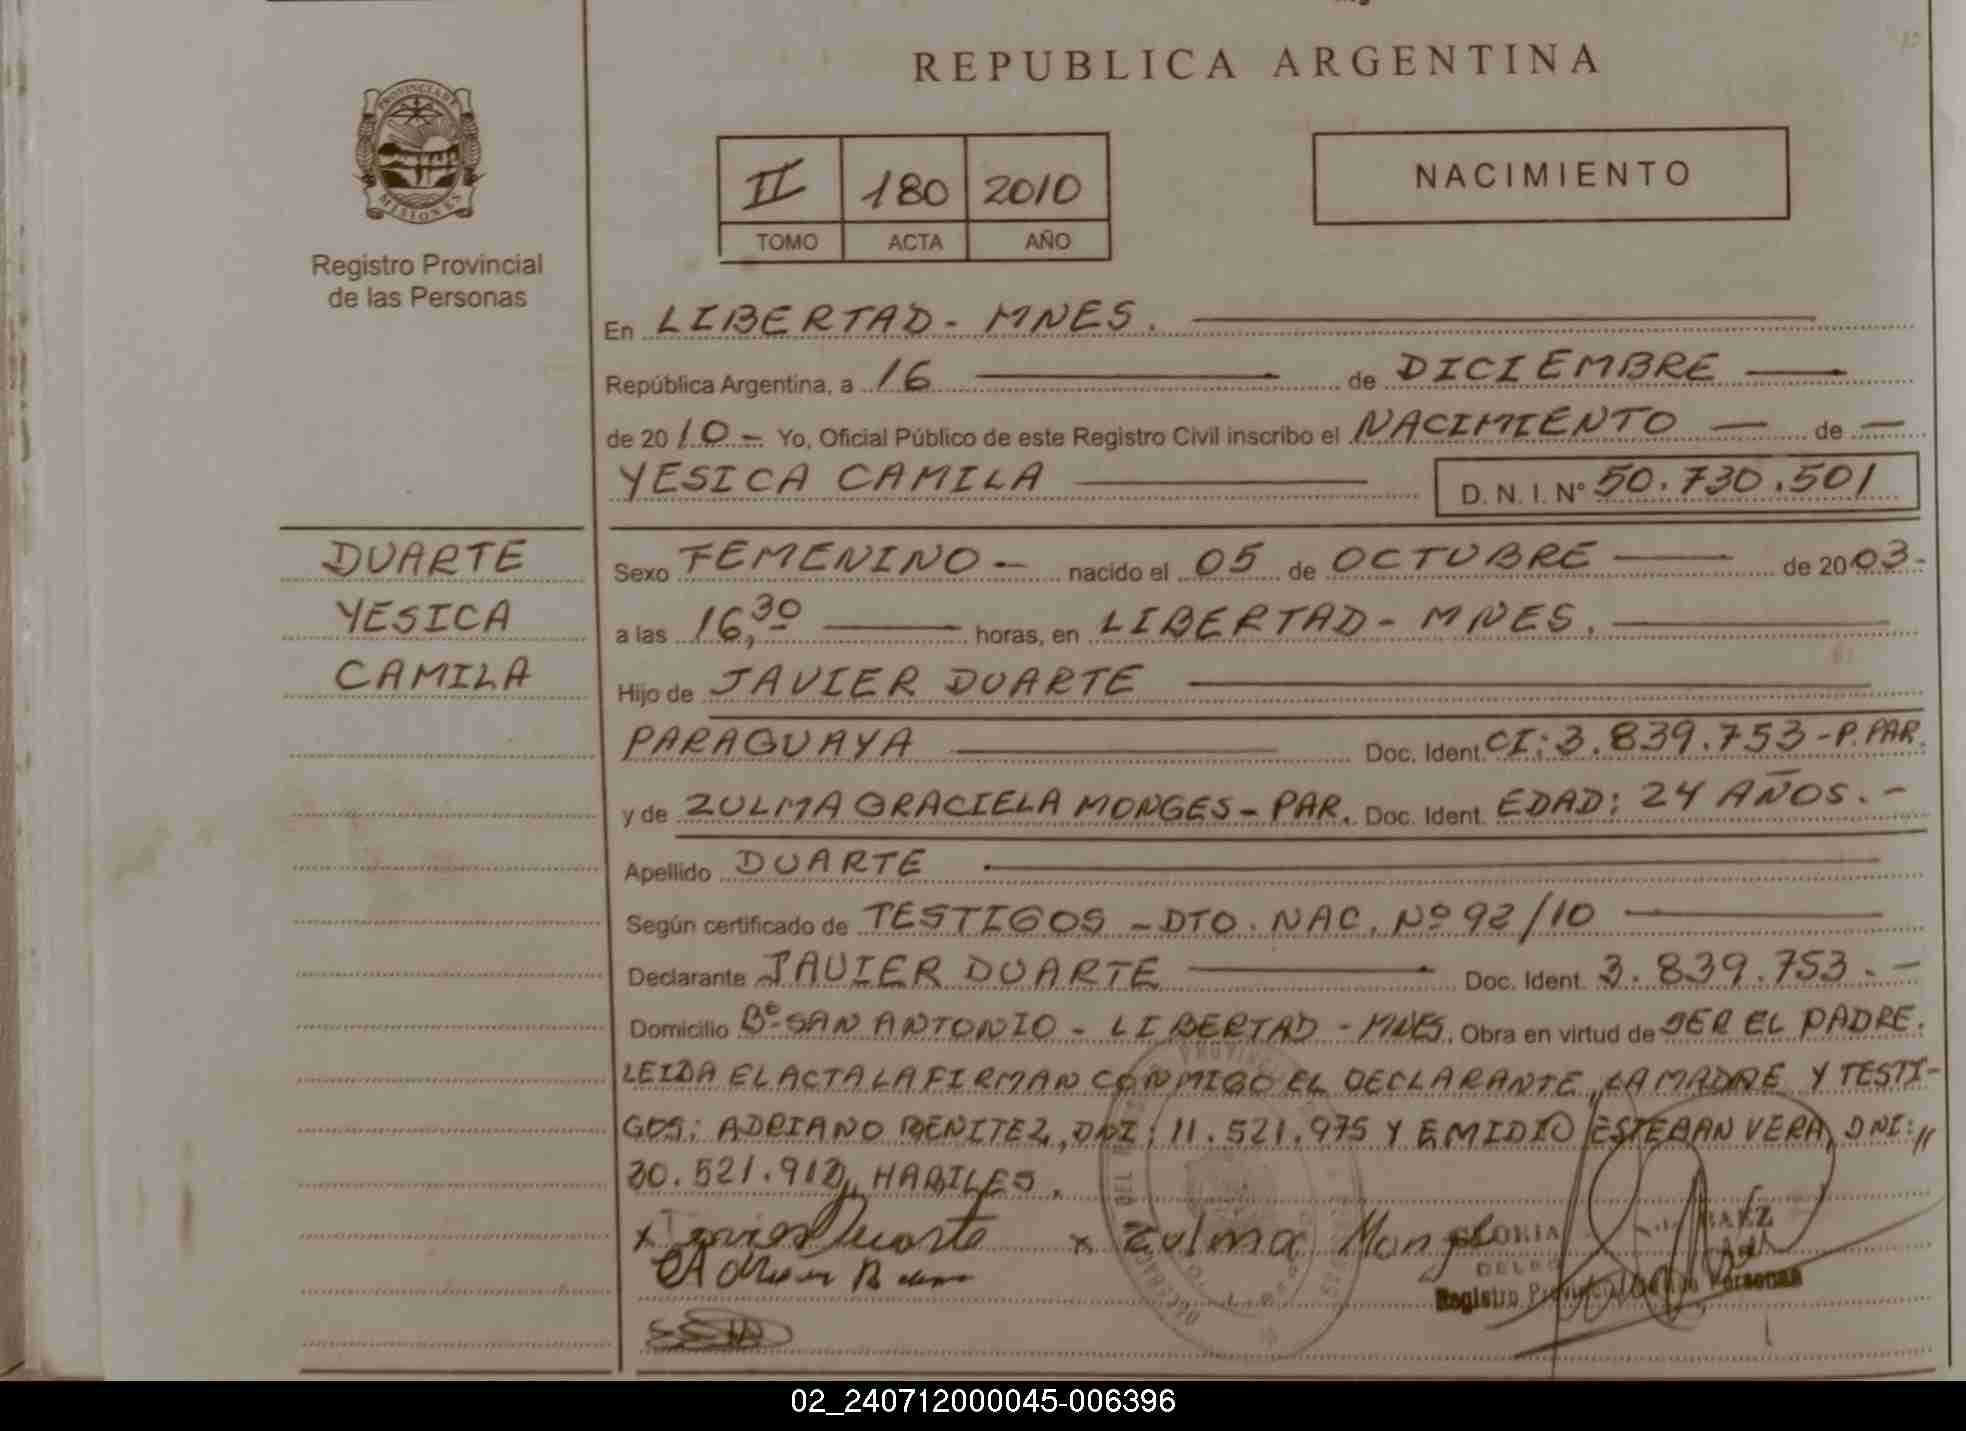 REPUBLICA ARGENTINA
PROVINCIA DE
MISIONES
Registro Provincial
de las Personas
II 180 2010
TOMO ACTA AÑO
NACIMIENTO
En LIBERTAD - MNES.
República Argentina, a 16 de DICIEMBRE
de 2010 - Yo, Oficial Público de este Registro Civil inscribo el NACIMIENTO de
YESICA CAMILA D. N. I. Nº 50.730.501
DUARTE
YESICA
CAMILA
Sexo FEMENINO - nacido el 05 de OCTUBRE de 2003.-
a las 16,30 horas, en LIBERTAD - MNES.
Hijo de JAVIER DUARTE
PARAGUAYA Doc. Ident. CI: 3.839.753 - P. PAR.
y de ZULMA GRACIELA MONGES - PAR. Doc. Ident. EDAD: 24 AÑOS. -
Apellido DUARTE
Según certificado de TESTIGOS - DTO. NAC. Nº 92/10
Declarante JAVIER DUARTE Doc. Ident. 3.839.753. -
Domicilio Bº SAN ANTONIO - LIBERTAD - MNES. Obra en virtud de SER EL PADRE.
LEIDA EL ACTA LA FIRMAN CONMIGO EL DECLARANTE, LA MADRE Y TESTI-
GOS: ADRIANO BENITEZ, DNI: 11.521.975 Y EMIDIO ESTEBAN VERA, DNI:,,
30.521.912,, HABILES.
x Javier Duarte x Zulma Monges
GLORIA BAEZ
Registro Provincial de las Personas
02_240712000045-006396